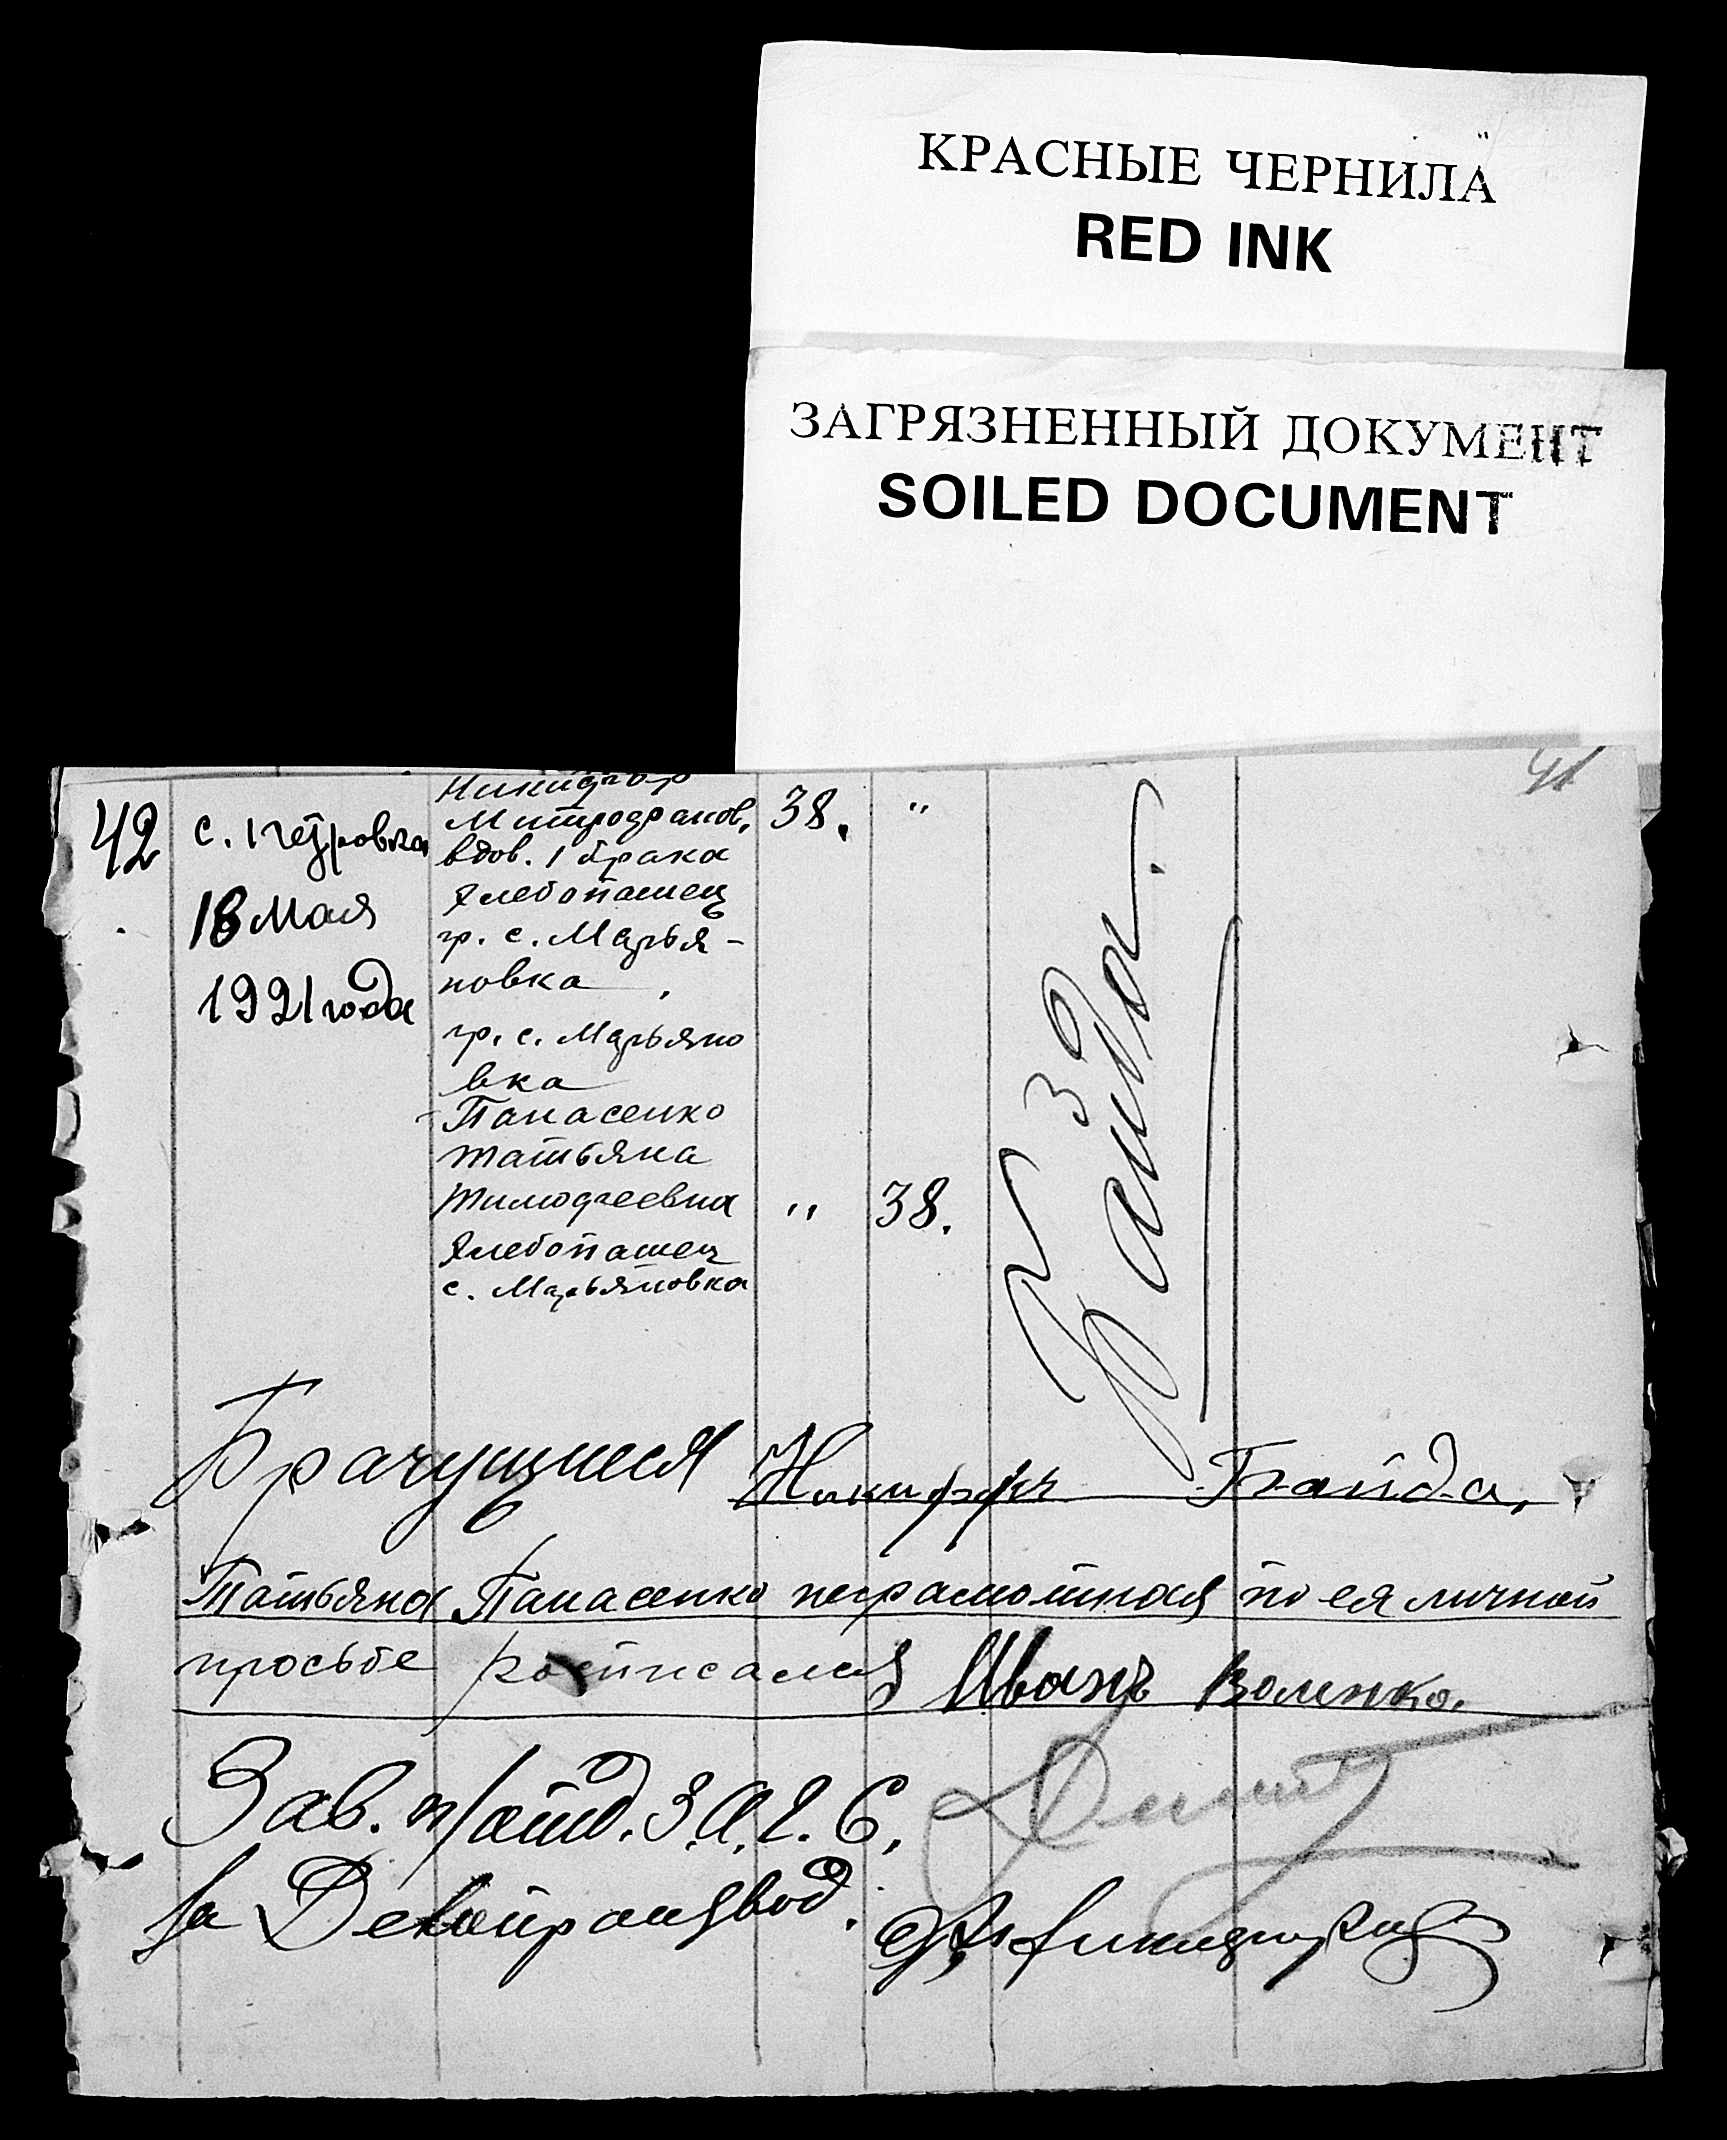 КРАСНЫЕ ЧЕРНИЛА
RED INK
ЗАГРЯЗНЕННЫЙ ДОКУМЕНТ
SOILED DOCUMENT
41
42
с. Петровка
18 Мая
1921 года
Никифор
Митрофанов.
вдов. 1 брака
Хлебопашец
гр. с. Марья-
новка
гр. с. Марьяно
вка
Панасенко
Татьяна
Тимофеевна
Хлебопашец
с. Марьяновка
38. "
" 38.
Байда.
Брачущиеся Никифоръ Байда,
Татьяна Панасенко неграмотная по ея личной
просьбе росписался Иванъ
Зав. п/отд. З.А.Г.С.
За Делопроизвод.